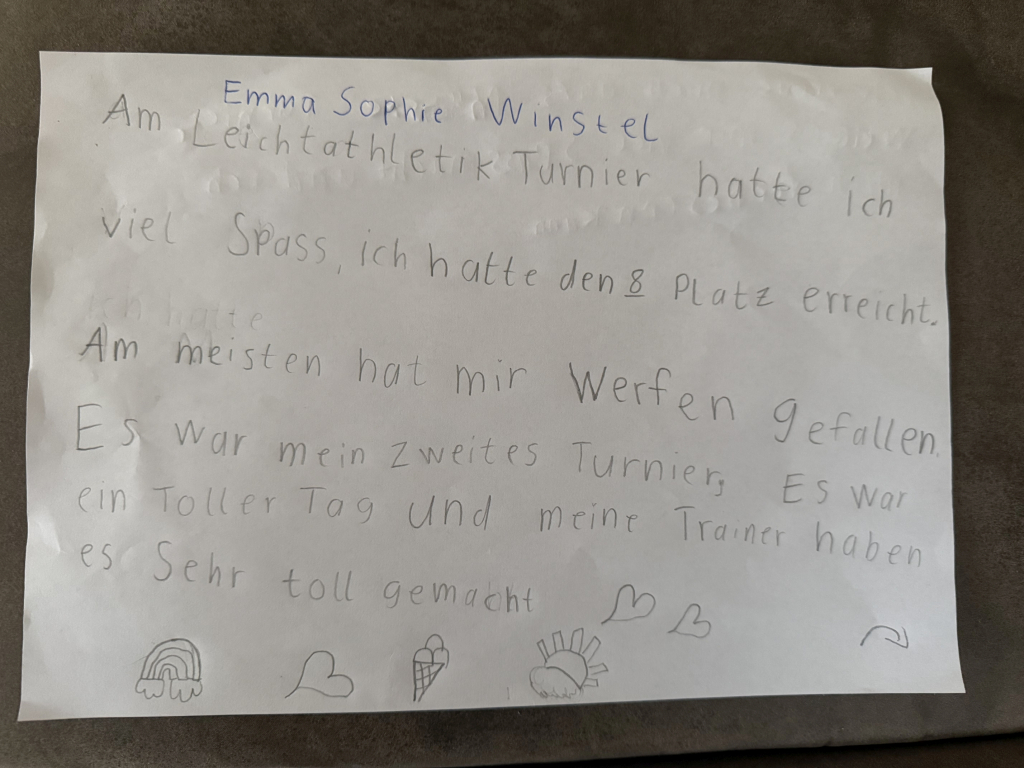 Emma Sophie Winstel
Am Leichtathletik Turnier hatte ich
viel Spass, ich hatte den 8 Platz erreicht.
ich hatte
Am meisten hat mir Werfen gefallen.
Es war mein zweites Turnier, Es war
ein Toller Tag und meine Trainer haben
es Sehr toll gemacht